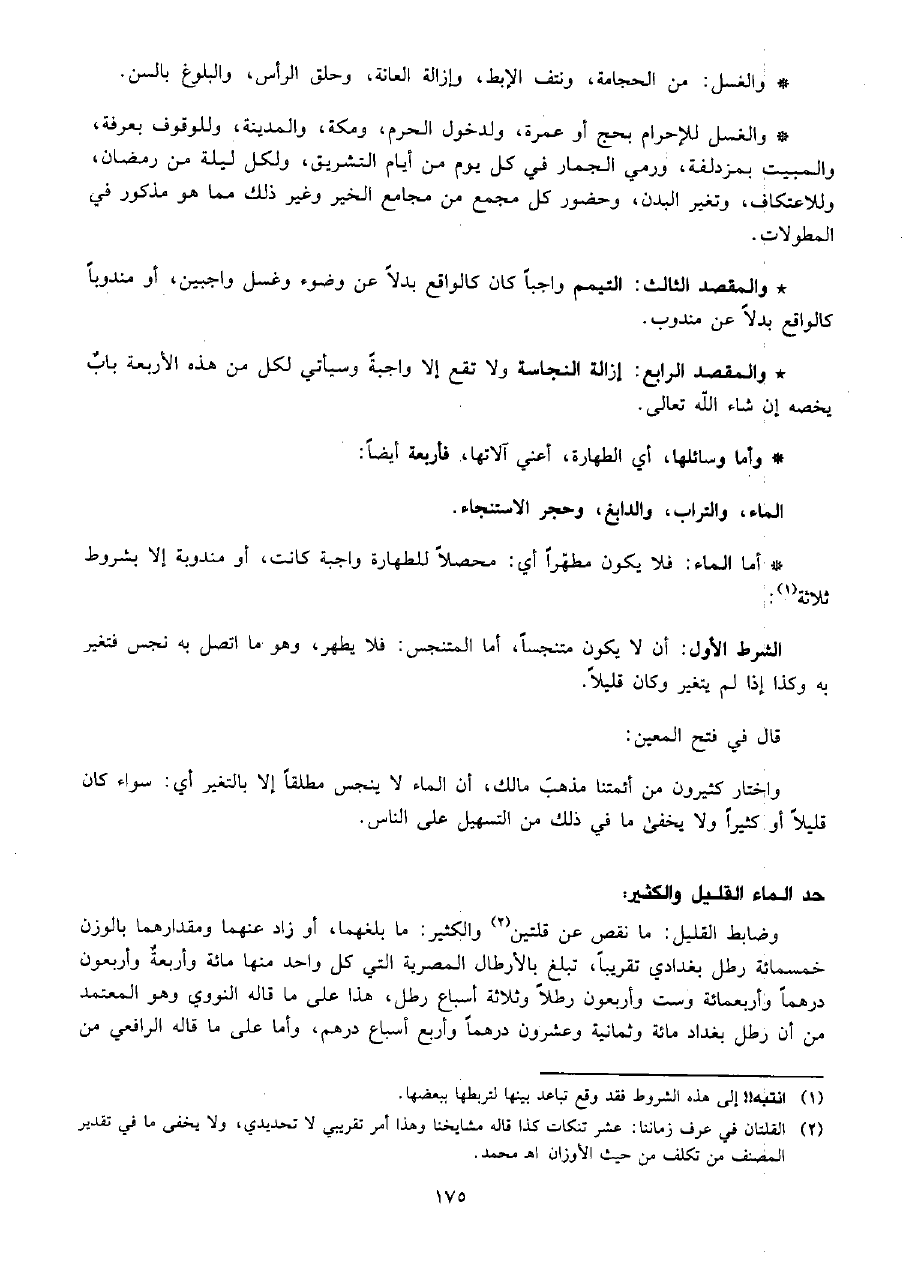 * والغسل: من الحجامة، ونتف الإبط، وإزالة العانة، وحلق الرأس، والبلوغ بالسن.
* والغسل للإحرام بحج أو عمرة، ولدخول الحرم، ومكة، والمدينة، وللوقوف بعرفة،
والمبيت بمزدلفة، ورمي الجمار في كل يوم من أيام التشريق، ولكل ليلة من رمضان،
وللاعتكاف، وتغير البدن، وحضور كل مجمع من مجامع الخير وغير ذلك مما هو مذكور في
المطولات.
* والمقصد الثالث: التيمم واجباً كان كالواقع بدلاً عن وضوء وغسل واجبين، أو مندوباً
كالواقع بدلاً عن مندوب.
* والمقصد الرابع: إزالة النجاسة ولا تقع إلا واجبةً وسيأتي لكل من هذه الأربعة بابٌ
يخصه إن شاء اللّه تعالى.
* وأما وسائلها، أي الطهارة، أعني آلاتها، فأربعة أيضاً:
الماء، والتراب، والدابغ، وحجر الاستنجاء.
* أما الماء: فلا يكون مطهّراً أي: محصلاً للطهارة واجبة كانت، أو مندوبة إلا بشروط
ثلاثة(١):
الشرط الأول: أن لا يكون متنجساً، أما المتنجس: فلا يطهر، وهو ما اتصل به نجس فتغير
به وكذا إذا لم يتغير وكان قليلاً.
قال في فتح المعين:
واختار كثيرون من أئمتنا مذهبَ مالك، أن الماء لا ينجس مطلقاً إلا بالتغير أي: سواء كان
قليلاً أو كثيراً ولا يخفىٰ ما في ذلك من التسهيل على الناس.
حد الماء القليل والكثير:
وضابط القليل: ما نقص عن قلتين(٢) والكثير: ما بلغهما، أو زاد عنهما ومقدارهما بالوزن
خمسمائة رطل بغدادي تقريباً، تبلغ بالأرطال المصرية التي كل واحد منها مائة وأربعةٌ وأربعون
درهماً وأربعمائة وست وأربعون رطلاً وثلاثة أسباع رطل، هذا على ما قاله النووي وهو المعتمد
من أن رطل بغداد مائة وثمانية وعشرون درهماً وأربع أسباع درهم، وأما على ما قاله الرافعي من
(١) انتبه!! إلى هذه الشروط فقد وقع تباعد بينها لتربطها ببعضها.
(٢) القلتان في عرف زماننا: عشر تنكات كذا قاله مشايخنا وهذا أمر تقريبي لا تحديدي، ولا يخفى ما في تقدير
المصنف من تكلف من حيث الأوزان اهـ محمد.
١٧٥